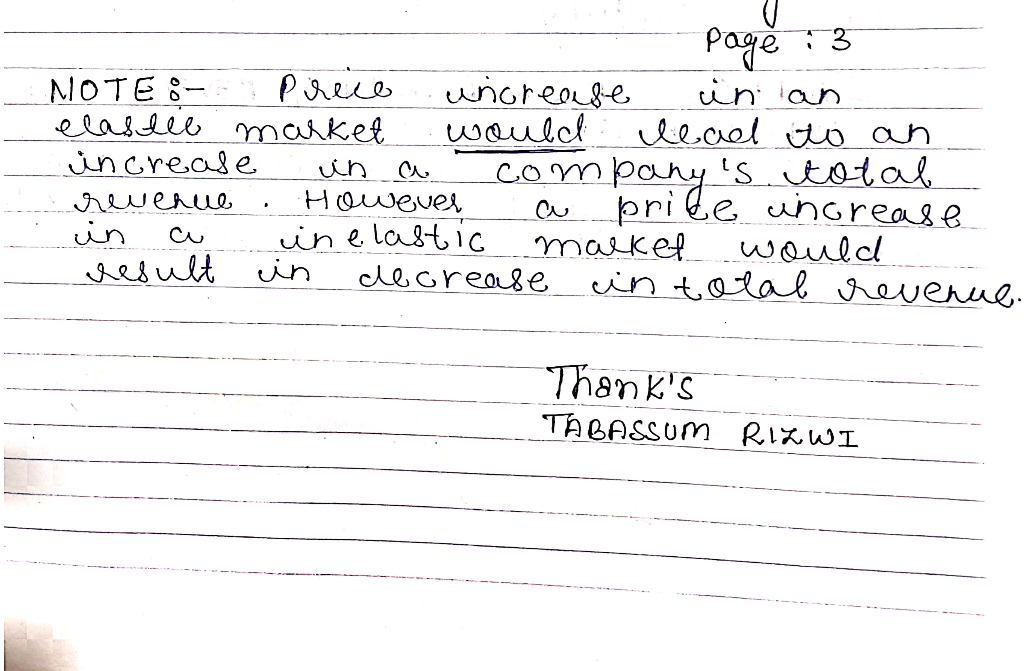 Page : 3
NOTE :- Price increase in an
elastic market would lead to an
increase in a company's total
revenue. However, a price increase
in a inelastic market would
result in decrease in total revenue.
Thank's
TABASSUM RIZWI